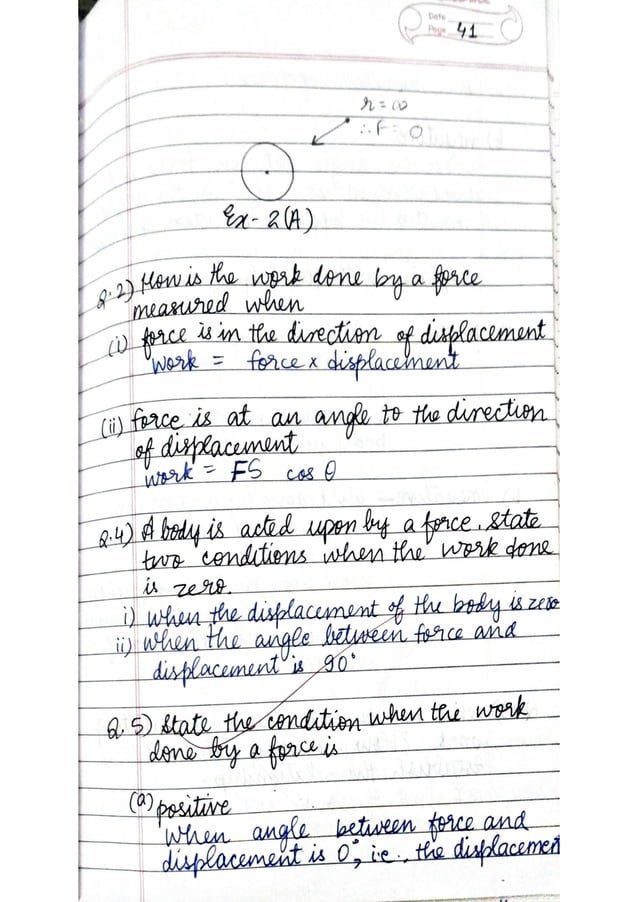 Date
Page 41
r = ∞
∴ F = 0
Ex - 2(A)
Q.2) How is the work done by a force
measured when
(i) force is in the direction of displacement
work = force x displacement
(ii) force is at an angle to the direction
of displacement
work = FS cos θ
Q.4) A body is acted upon by a force. State
two conditions when the work done
is zero.
i) when the displacement of the body is zero
ii) when the angle between force and
displacement is 90°
Q.5) State the condition when the work
done by a force is
(a) positive
When angle between force and
displacement is 0°, i.e., the displacemen